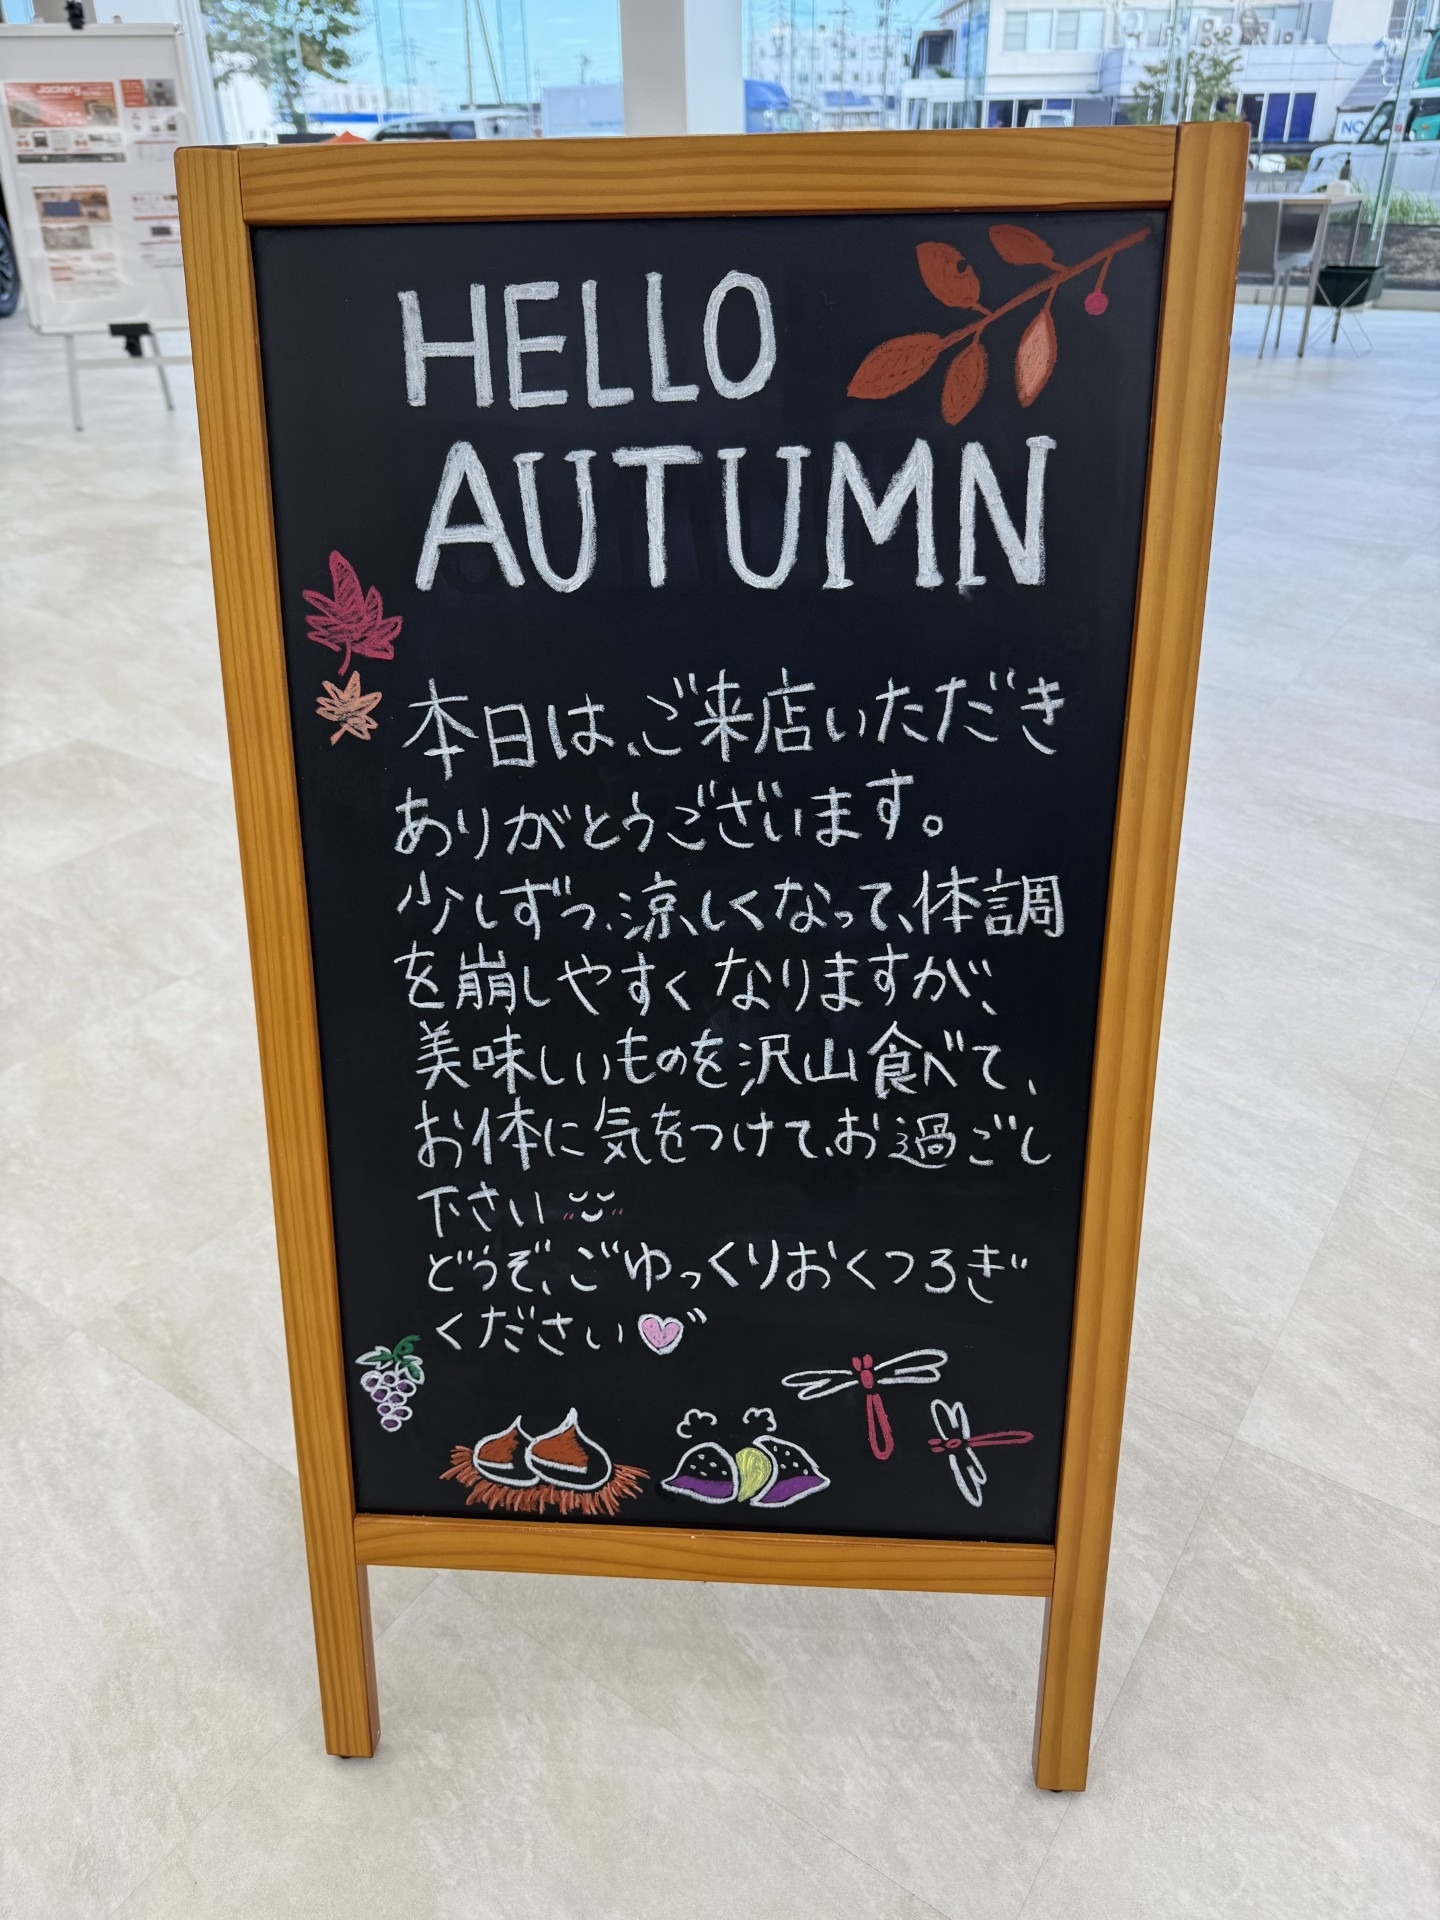 Jackery
NO
HELLO
AUTUMN
本日は、ご来店いただき
ありがとうございます。
少しずつ、涼しくなって、体調
を崩しやすくなりますが、
美味しいものを沢山食べて、
お体に気をつけて、お過ごし
下さい
どうぞ、ごゆっくりおくつろぎ
ください